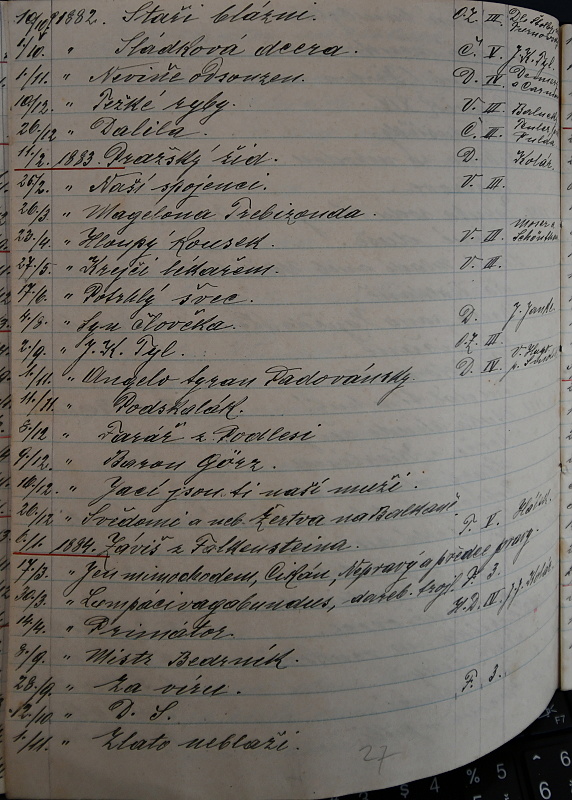 19/9 1882. Staří blázni. O.Z. III.
1/10. " Sládkova dcera. Č. V. J. K. Tyl.
1/11. " Nevinně odsouzen. D. IV.
10/12. " Těžké ryby. V. III. Balucki
26/12 " Dalila. Č. II.
11/2. 1883. Pražský žid. D. Kolár.
25/2. " Naši spojenci. V. III.
26/3 " Magelona Trebizonda.
23/4. " Hloupý kousek. V. III. Moser a Schönthan
27/5. " Krejčí lékařem. V. III.
17/6. " Potrhlý švec.
4/8. " Syn člověka. D. J. Janke.
2/9. " J. K. Tyl. O.Z. III
1/11. " Angelo tyran Padovánský. D. IV. V. Hugo
11/11. " Podskalák.
8/12 " Farář z Podlesí
9/12. " Baron Görz.
16/12. " Jací jsou ti naši muži.
26/12 " Svědomí aneb Žertva na Balkaně.
6/1. 1884. Záviš z Falkensteina. T. V. Hálek.
17/3. " Jen mimochodem, Cikán, Nepravý a předce pravý. F. 3.
30/3. " Lumpácivagabundus, aneb. trojl. H.D. IV. J. J. Kolár.
14/4. " Primátor.
8/9. " Mistr Bedrník.
28/9. " Za víru. F. 3.
12/10 " D. S.
1/11. " Zlato neblaží.
27
F7
$ 4 % 5 ^ 6